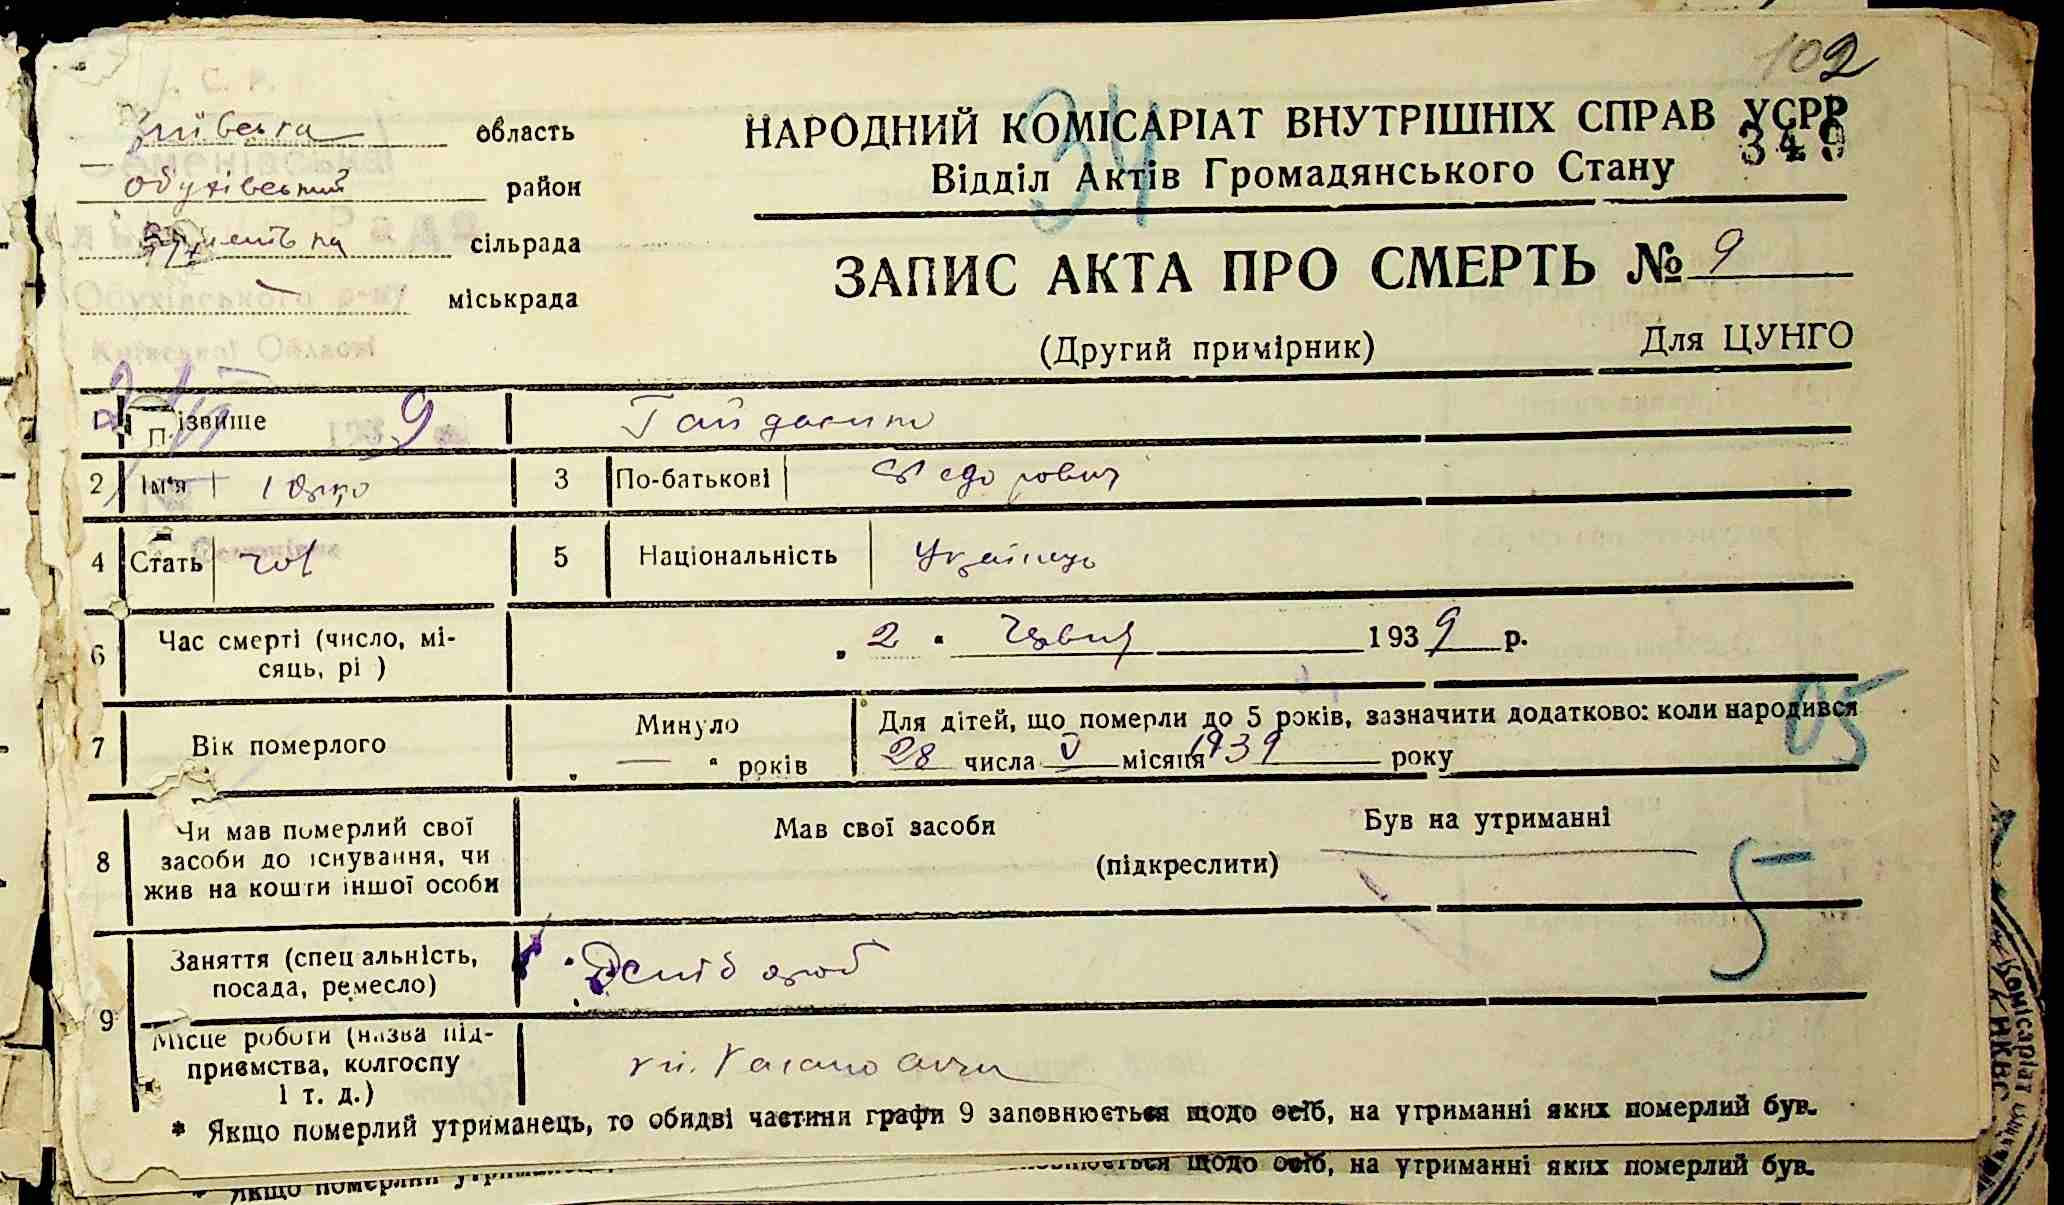 102
Київська область
НАРОДНИЙ КОМІСАРІАТ ВНУТРІШНІХ СПРАВ УСРР
349
34
Обухівський район
Відділ Актів Громадянського Стану
сільрада
ЗАПИС АКТА ПРО СМЕРТЬ № 9
Обухівського р-ну
міськрада
Київської Області
(Другий примірник) Для ЦУНГО
1 Прізвище
2 Ім'я 3 По-батькові Федорович
4 Стать чол 5 Національність Українець
6 Час смерті (число, мі-
сяць, рі ) „ 2 " червня 1939 р.
7 Вік померлого Минуло „ — " років Для дітей, що померли до 5 років, зазначити додатково: коли народився
28 числа V місяця 1939 року
05
8 Чи мав померлий свої
засоби до існування, чи
жив на кошти іншої особи
Мав свої засоби Був на утриманні
(підкреслити)
5
9 Заняття (спец альність,
посада, ремесло)
Місце роботи (назва під-
приємства, колгоспу
і т. д.)
* Якщо померлий утриманець, то обидві частини графи 9 заповнюється щодо осіб, на утриманні яких померлий був.
* Якщо померлий щодо осіб, на утриманні яких померлий був.